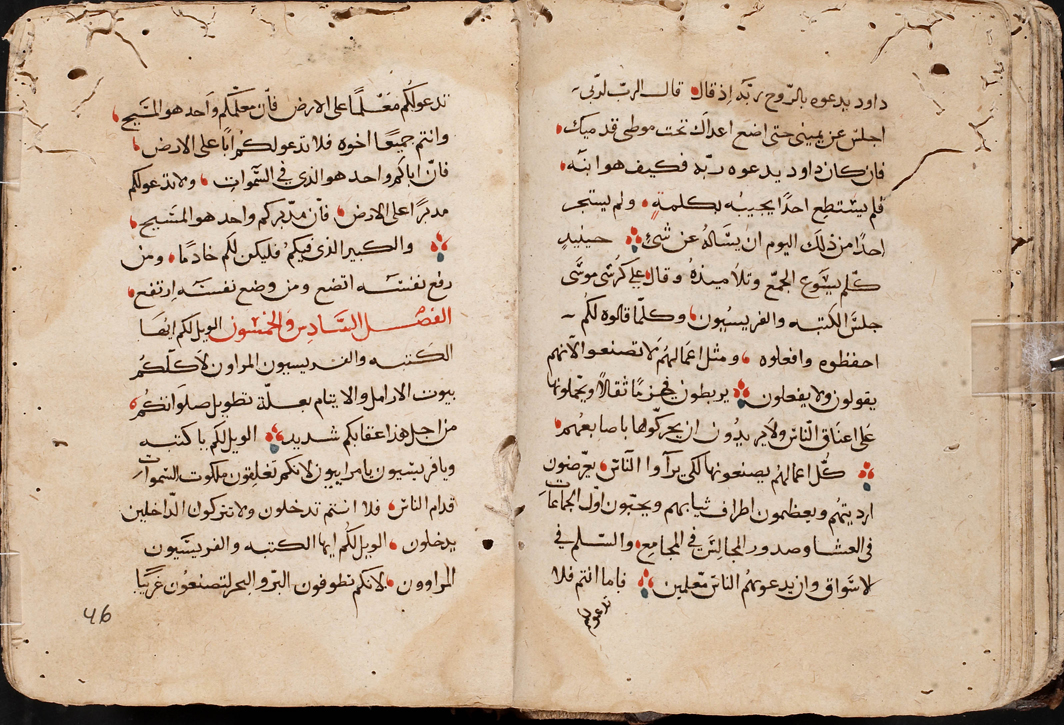 داود يدعوه بالروح ربّه إذ قال قال الرب لربّي
اجلس عن يميني حتى اضع اعداك تحت موطى قدميك
فان كان داود يدعوه ربّه فكيف هو ابنه
فلم يستطع احدًا يجيبه بكلمةٍ ولم يستجر
احدًا من ذلك اليوم ان يسّاله عن شيء حينيدٍ
كلّم يسّوع الجمع وتلاميذهُ وقال على كرسّى موسّى
جلسَ الكتبه والفريسيون وكلّما قالوه لكمُ
احفظوه وافعلوه ومثل اعمالهمُ لا تصنعوا لانهم
يقولون ولا يفعلون يربطون نحزمًا ثقالاً ويحملونها
على اعناق النّاس ولا يريدُون ان يحركوها باصابعهم
كلّ اعمالهم يصنعونها لكي يرآوا النّاس يعرّضون
ارديتهُم ويعظمون اطراف ثيابهم ويحبّون اوّل الجماعات
في العشا وصدور المجالسَ في المجامع والسّلم في
لاسّواق وان يدعونهمُ الناس معلمين فاما انتم فلا
تدعولكم
تدعولكُم مَعّلمًا على الارض فانّ معلّمكم واحد هو المسَيح
وانتم جميعًا اخوه فلا تدعو لكمُ ابًا على الارض
فانّ اباكمُ واحد هو الذي في السّموات ولا تدعولكم
مدبرًا على الارض فانّ مدّبركم واحد هو المسَّيح
والكبير الذي فيكمُ فليكن لكم خادمًا ومن
رفع نفسّه اتضع ومن وضع نفسّه ارتفع
الفصّل السّادس والخمسون الويل لكم ايّها
الكتبه والفريسيون المراون لاكلّكمُ
بيوت الارامل والايتام بعلّة تطويل صلواتكمُ
من اجل هذا عقابكم شديد الويل لكم يا كتبه
ويا فريسّيون يا مراييون لانكم تغلقون ملكوت السّموات
قدام الناسّ فلا انتم تدخلون ولا تتركون الدّاخلين
يدخلون الويل لكُم ايها الكتبه والفريسّيون
المراوون لانكم تطوفون البرّ والبحر لتصنعون غريبًا
46